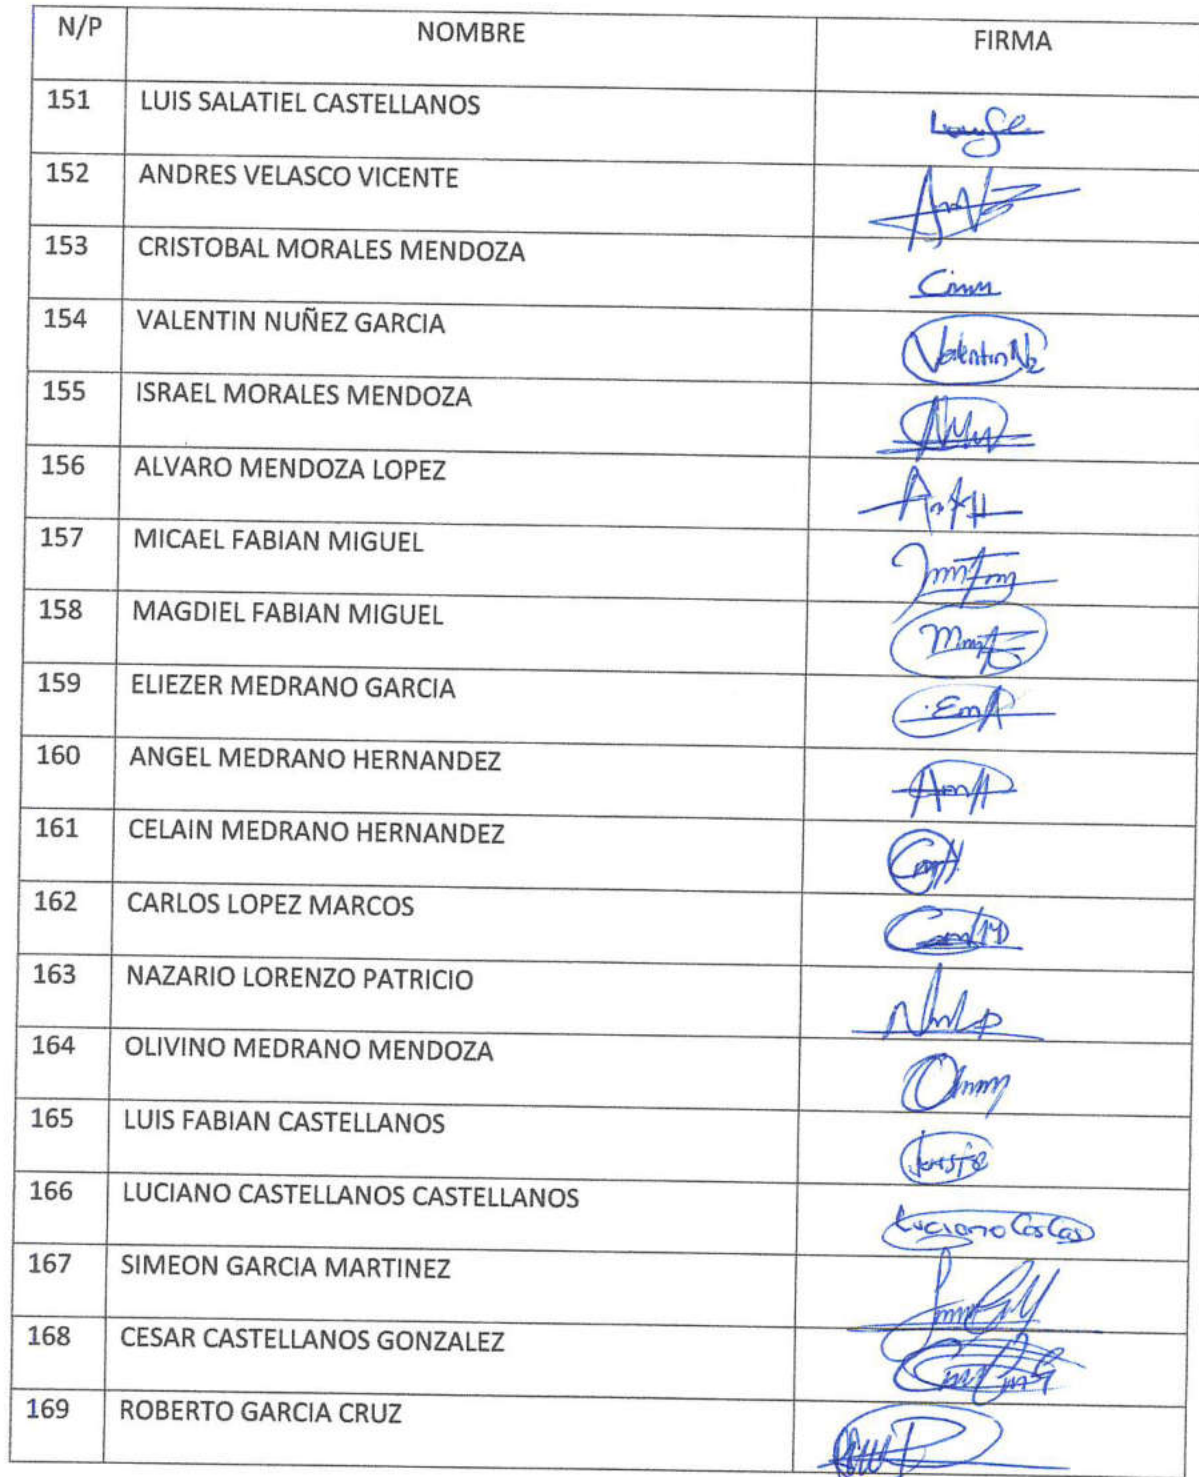 N/P NOMBRE FIRMA
151 LUIS SALATIEL CASTELLANOS
152 ANDRES VELASCO VICENTE
153 CRISTOBAL MORALES MENDOZA
154 VALENTIN NUÑEZ GARCIA Valentin Nz
155 ISRAEL MORALES MENDOZA
156 ALVARO MENDOZA LOPEZ
157 MICAEL FABIAN MIGUEL
158 MAGDIEL FABIAN MIGUEL
159 ELIEZER MEDRANO GARCIA
160 ANGEL MEDRANO HERNANDEZ
161 CELAIN MEDRANO HERNANDEZ
162 CARLOS LOPEZ MARCOS
163 NAZARIO LORENZO PATRICIO
164 OLIVINO MEDRANO MENDOZA
165 LUIS FABIAN CASTELLANOS
166 LUCIANO CASTELLANOS CASTELLANOS Luciano Cas Cas
167 SIMEON GARCIA MARTINEZ
168 CESAR CASTELLANOS GONZALEZ
169 ROBERTO GARCIA CRUZ